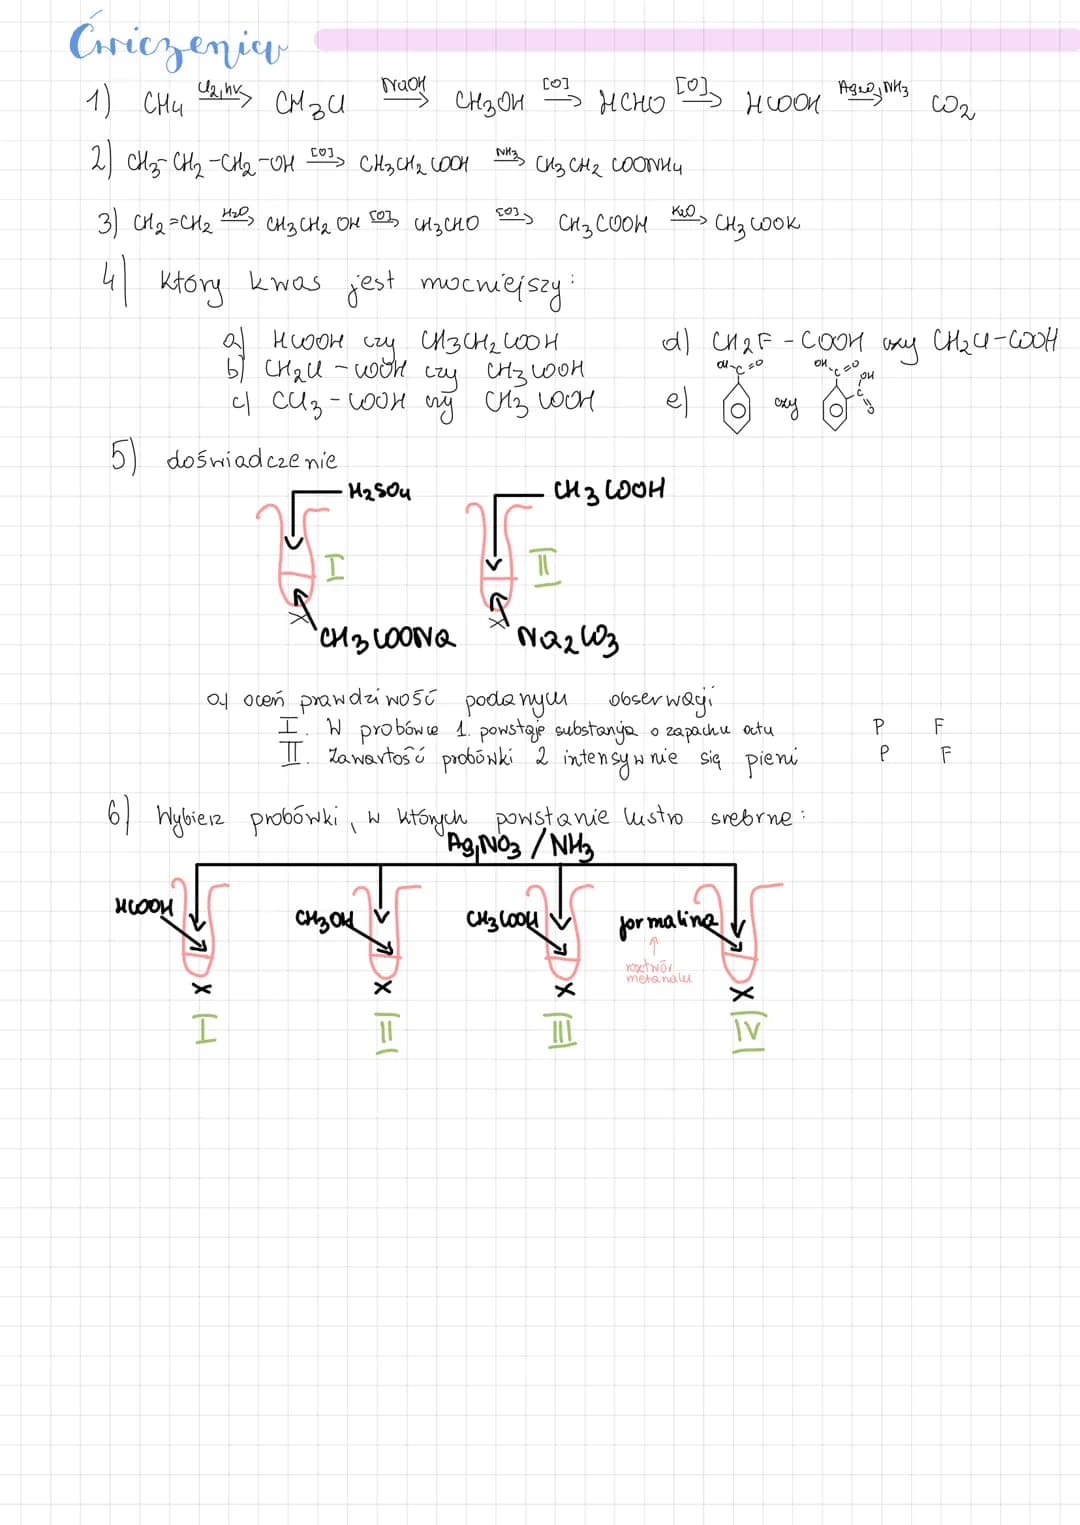 Ćwiczenia
1) CH4 Cl2,hν→ CH3Cl NaOH→ CH3OH [O]→ HCHO [O]→ HCOOH Ag2O,NH3→ CO2
2) CH3-CH2-CH2-OH [O]→ CH3CH2COOH NH3→ CH3CH2COONH4
3) CH2=CH2 H2O→ CH3CH2OH [O]→ CH3CHO [O]→ CH3COOH K2O→ CH3COOK
4) Który kwas jest mocniejszy:
a) HCOOH czy CH3CH2COOH
b) CH2Cl-COOH czy CH3COOH
c) CCl3-COOH czy CH3COOH
d) CH2F-COOH czy CH2Cl-COOH
e) OH C=O czy OH C=O OH C O
5) doświadczenie
H2SO4 CH3COOH
I II
CH3COONa Na2CO3
a) oceń prawdziwość podanych obserwacji
I. W probówce 1. powstaje substancja o zapachu octu P F
II. Zawartość probówki 2 intensywnie się pieni P F
6) Wybierz probówki, w których powstanie lustro srebrne:
AgNO3/NH3
HCOOH CH3OH CH3COOH formalina
↑
roztwór
metanalu
x x x x
I II III IV